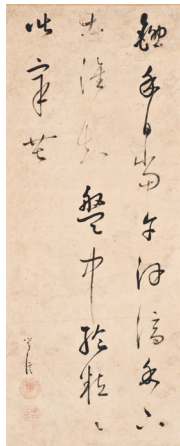 鋤禾日當午汗滴禾下
土誰知盤中飧粒々
皆辛苦